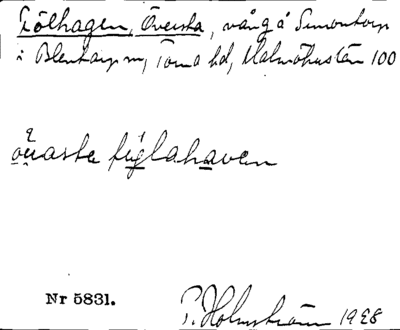 Fölhagen, Översta, vång å Simontorp
i Blentarp sn, Torna hd, Malmöhus län 100
övasta fyglahaven
Nr 5831.
P. Holmström 1928